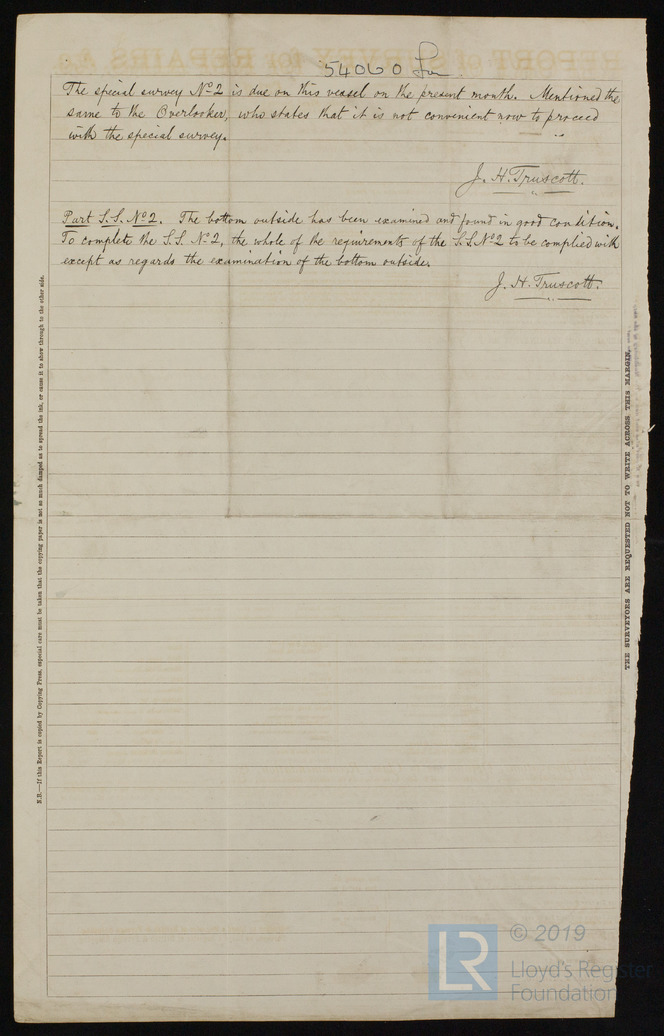 REPORT of SURVEY for REPAIRS &c.
54060
The special survey No 2 is due on this vessel on the present month. Mentioned the
same to the Overlooker, who states that it is not convenient now to proceed
with the special survey.
J. H. Truscott.
Part S.S. No 2. The bottom outside has been examined and found in good condition.
To complete the S.S. No 2, the whole of the requirements of the S.S. No 2 to be complied with
except as regards the examination of the bottom outside.
J. H. Truscott.
N.B.—If this Report is copied by Copying Press, especial care must be taken that the copying paper is not so much damped as to spread the ink, or cause it to show through to the other side.
THE SURVEYORS ARE REQUESTED NOT TO WRITE ACROSS THIS MARGIN.
LR
© 2019
Lloyd's Register
Foundation